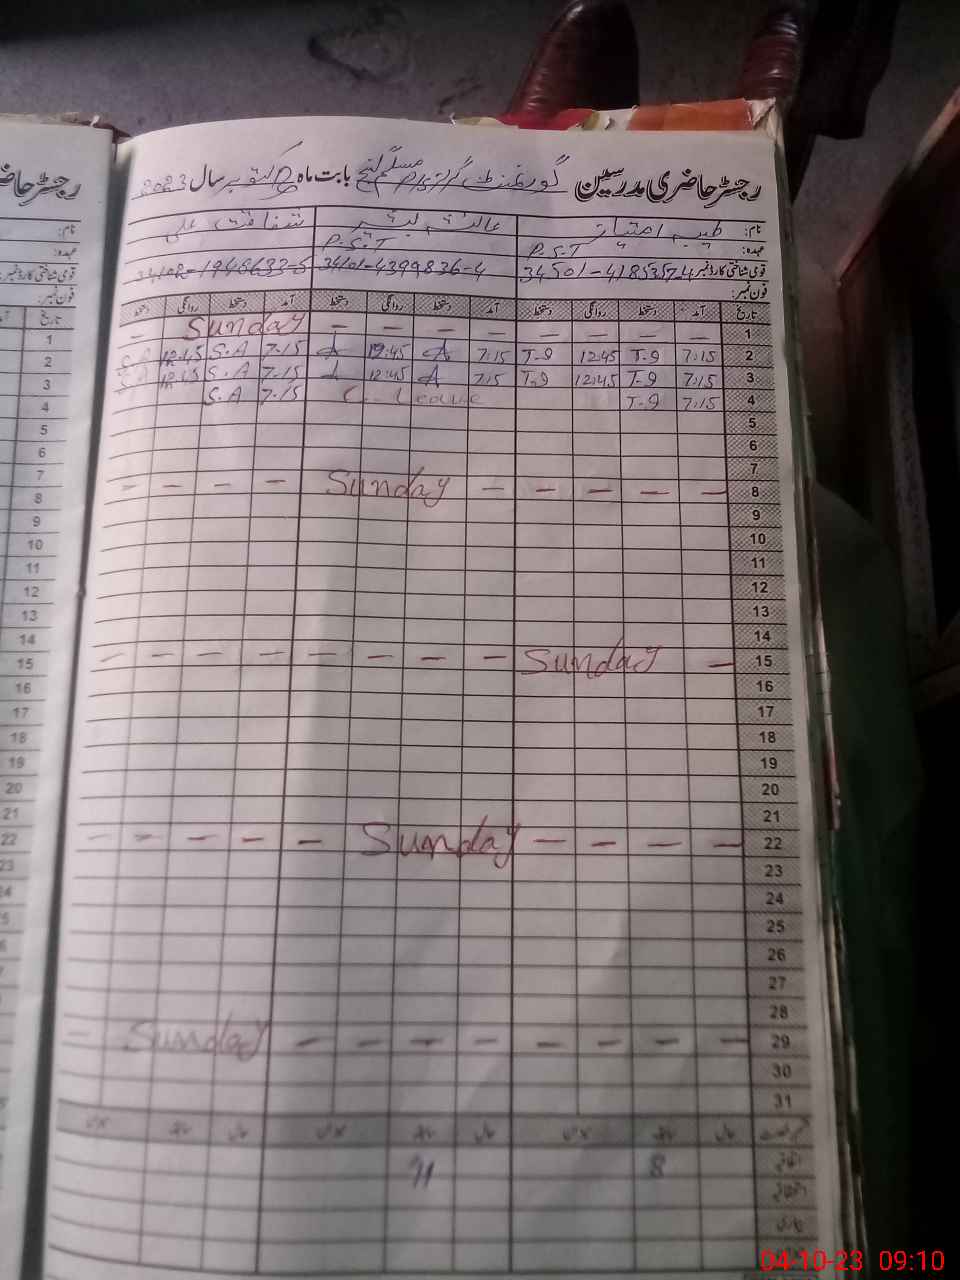 رجسٹر حاضری مدرسین گورنمنٹ بابت ماہ اکتوبر سال 2023
نام: طیب امتیاز شفاقت علی
عہدہ: P.S.T P.S.T
قومی شناختی کارڈ نمبر: 34501-4185357-4 34101-4399836-4
فون نمبر:
تاریخ آمد دستخط روانگی دستخط آمد دستخط روانگی دستخط آمد دستخط روانگی دستخط
1 — — — — — — — — Sunday —
2 7:15 T-9 12:45 T-9 7:15 A 12:45 A 7-15 S.A 12:45 S.A
3 7:15 T-9 12:45 T-9 7:15 A 12:45 A 7-15 S.A 12:45 S.A
4 7:15 T-9 C. Leave 7-15 S.A
5
6
7
8 — — — — — Sunday — — — —
9
10
11
12
13
14
15 — Sunday — — — — — — — —
16
17
18
19
20
21
22 — — — — Sunday — — — — —
23
24
25
26
27
28
29 — — — — — — — — — Sunday —
30
31
8 11
رجسٹر حاضری
نام:
عہدہ:
قومی شناختی کارڈ نمبر:
فون نمبر:
تاریخ
1
2
3
4
5
6
7
8
9
10
11
12
13
14
15
16
17
18
19
20
21
22
23
04-10-23 09:10